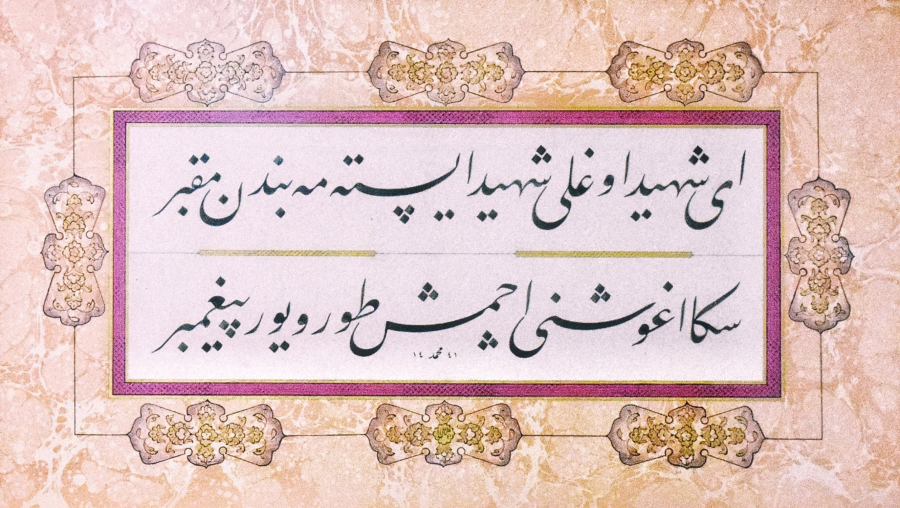 ای شهید اوغلی شهید ایسته مه بندن مقبر
سکا اغوشنی آچمش طورویور پیغمبر
١٤ محمد ٤١